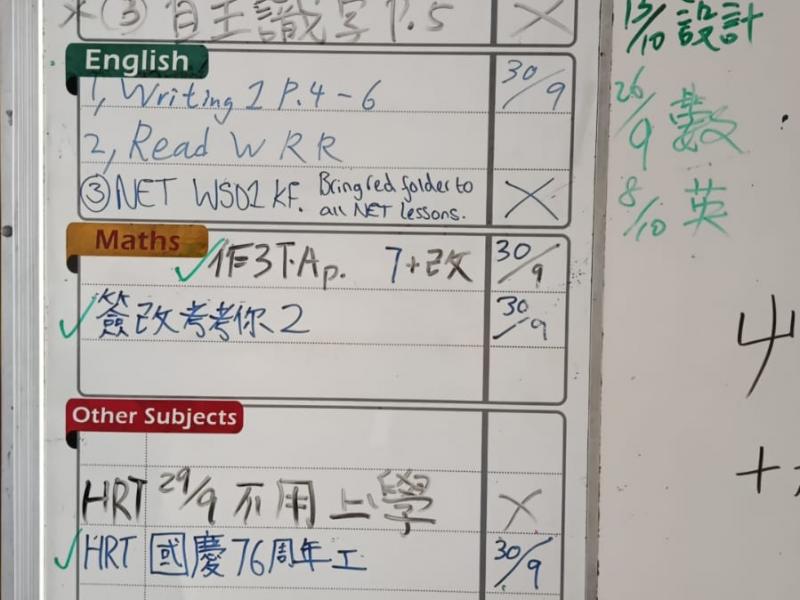 * ③ 自主識字 P.5 X
English
1, Writing 2 P.4-6 30/9
2, Read W R R
③ NET WSD1 KF. Bring red folder to all NET lessons. X
Maths
✓作3下Ap. 7+改 30/9
✓簽改考考你2 30/9
Other Subjects
HRT 29/9 不用上學 X
✓HRT 國慶76周年工 30/9
13/10 設計
26/9 數
8/10 英